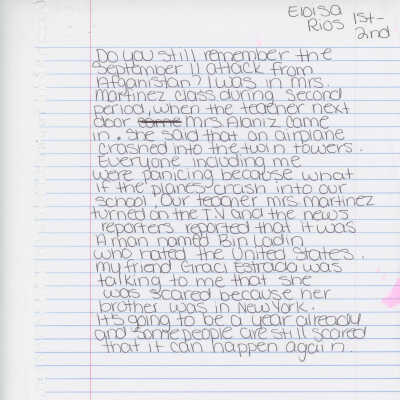 Eloisa
Rios 1st-
2nd
Do you still remember the
September 11 attack from
Afganistan? I was in mrs.
martinez class during second
period, when the teacher next
door came mrs Alaniz came
in. She said that an airplane
crashed into the twin towers.
Everyone including me
were panicing because what
if the planes crash into our
school. Our teacher mrs martinez
turned on the T.V and the news
reporters reported that it was
A man named Bin Ladin
who hated the United States.
my friend Giraci Estrado was
talking to me that she
was scared because her
brother was in New York.
It's going to be a year already
and some people are still scared
that it can happen again.